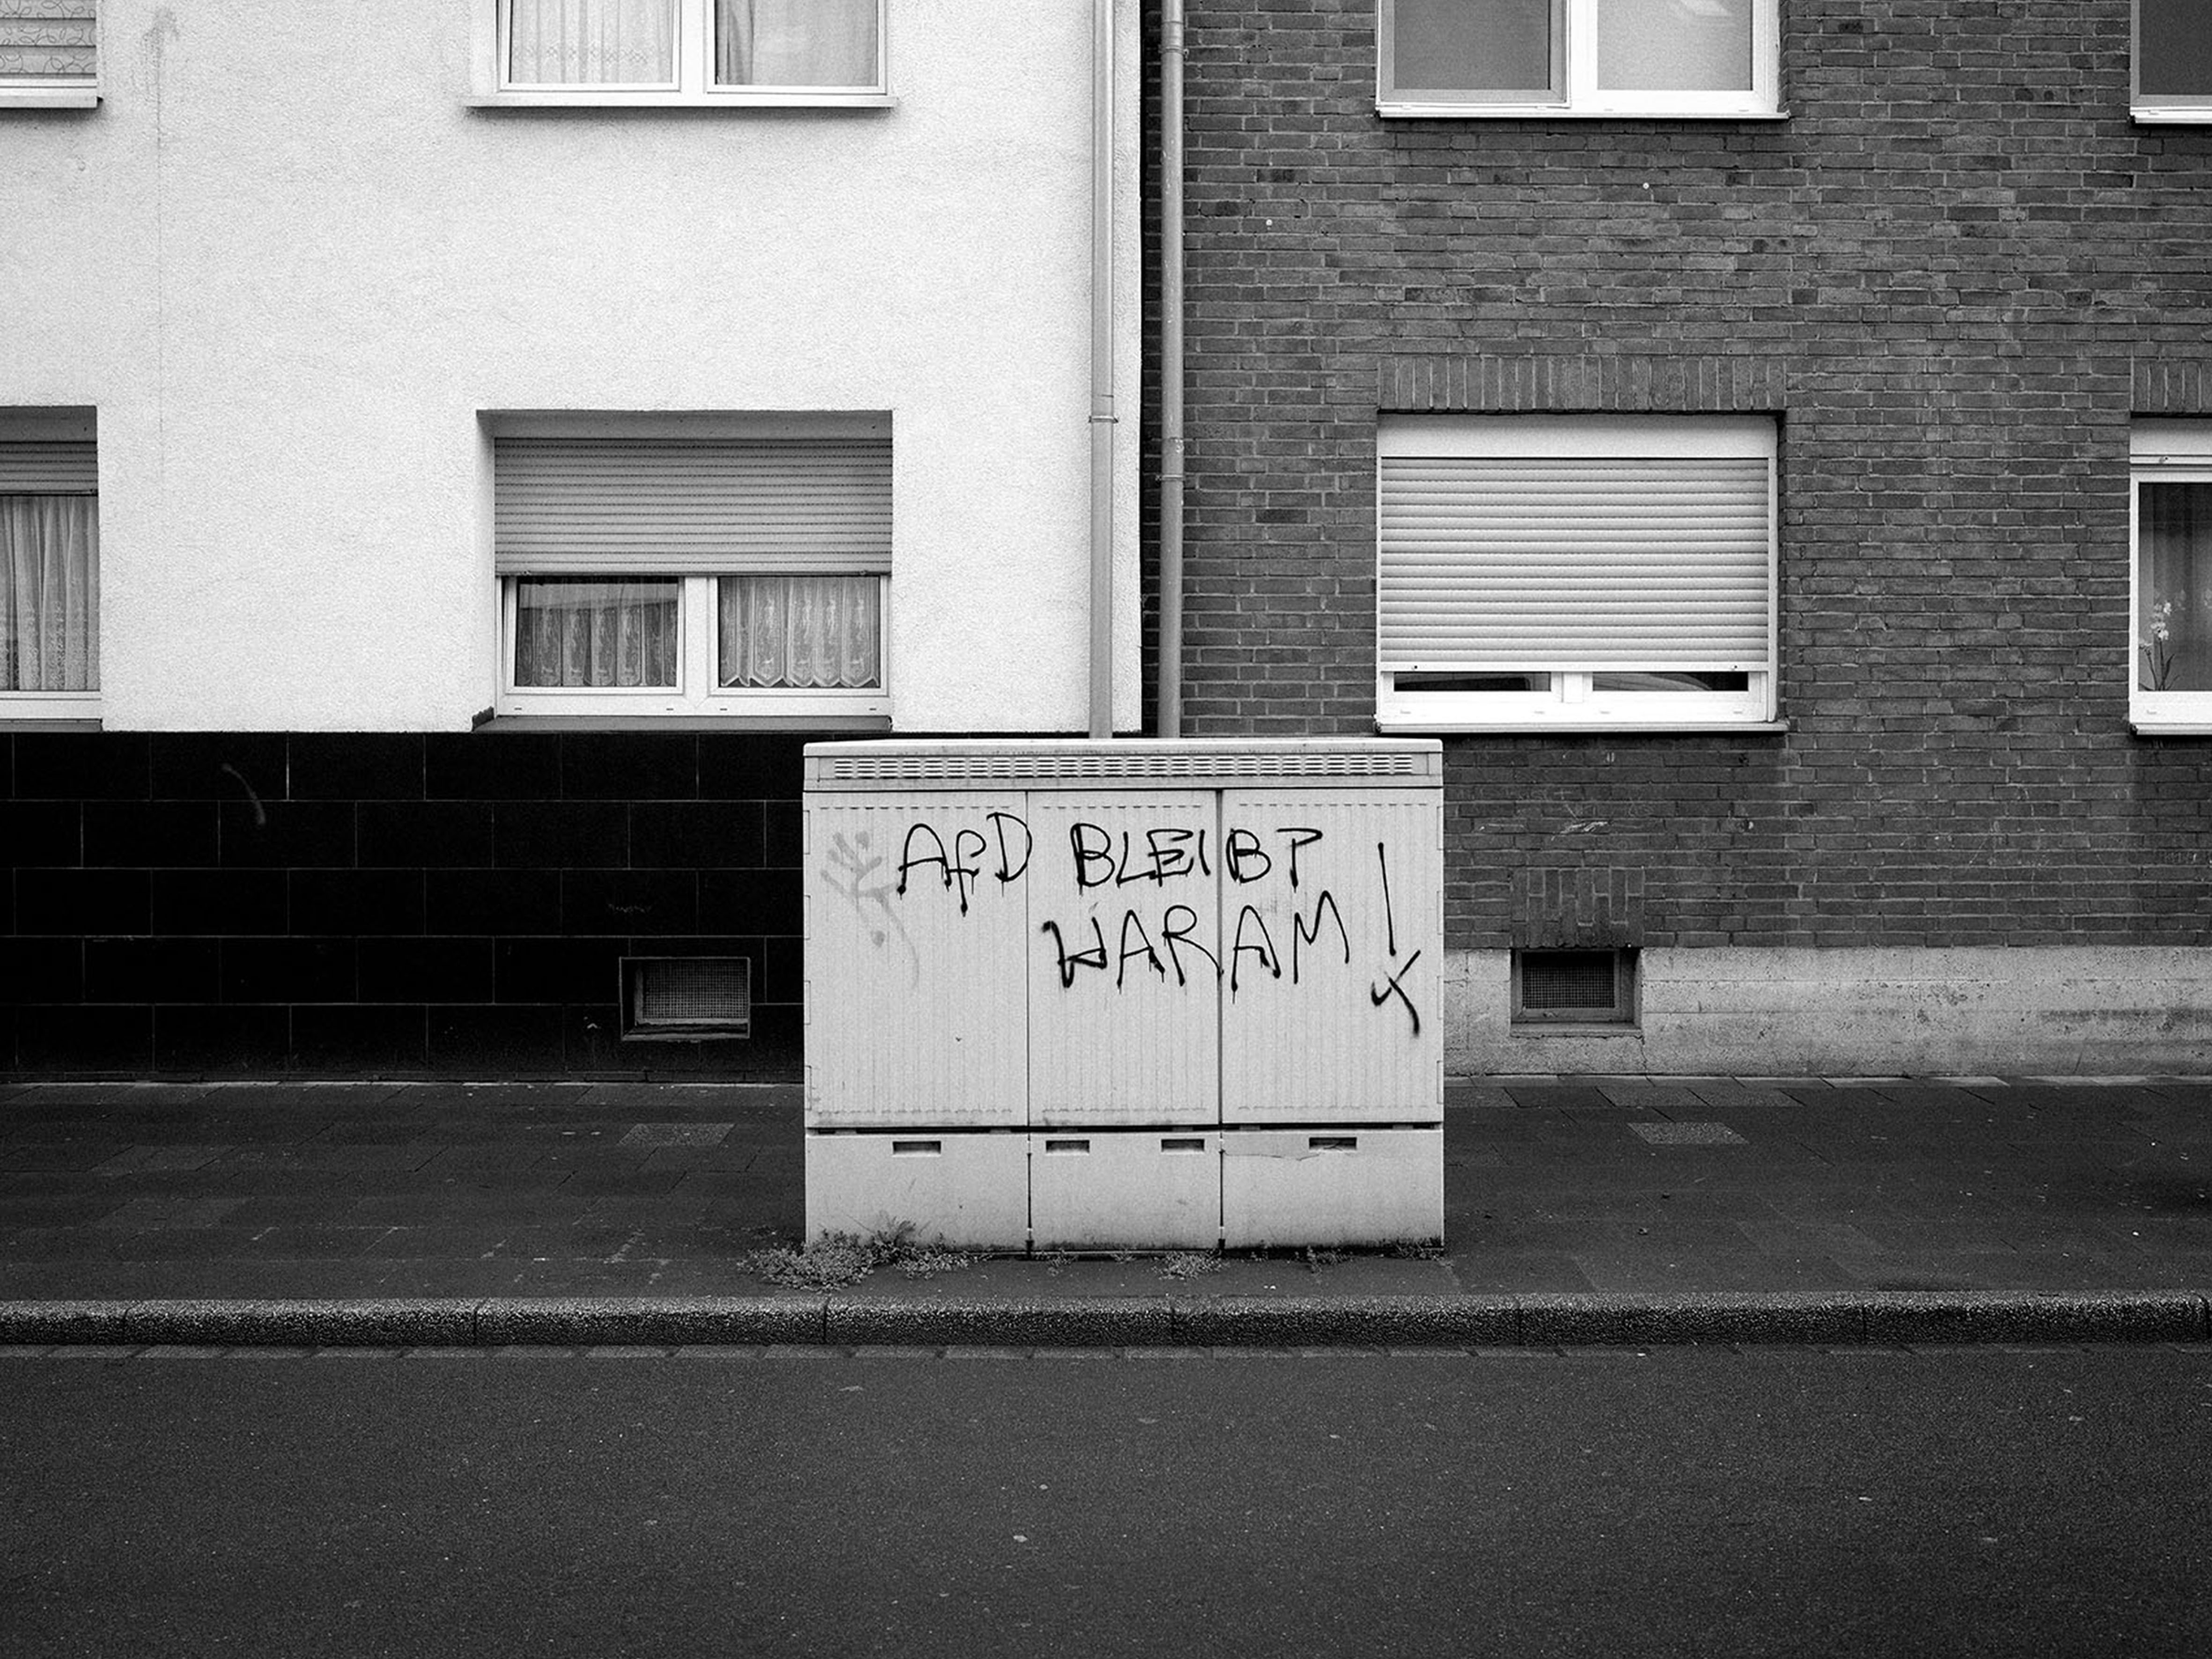 AfD BLEIBT
WARAM!